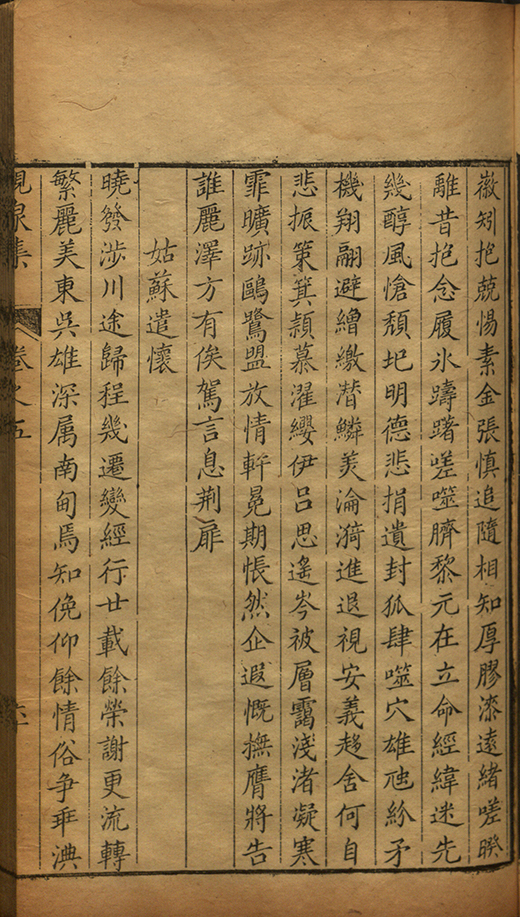 徽矧抱兢惕素金張慎追隨相知厚膠漆遠緒嗟暌
離昔抱念履氷躊躇嗟噬臍黎元在立命經緯迷先
幾醇風愴頹圯明德悲捐遺封狐肆噬穴雄虺紛矛
機翔翮避繒繳潛鱗羡淪漪進退視安義趍舍何自
悲振策箕潁慕濯纓伊呂思遙岑被層靄淺渚凝寒
霏曠跡鷗鷺盟放情軒冕期悵然企遐慨撫膺將告
誰麗澤方有俟駕言息荆扉
姑蘇遣懷
曉發涉川途歸程幾遷變經行廿載餘榮謝更流轉
繁麗美東吳雄深属南甸焉知俛仰餘情俗争乖淟
集
卷之五